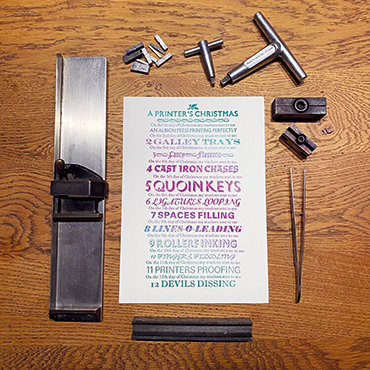 A PRINTER'S CHRISTMAS
On the 1st day of Christmas my truelove sent to me
AN ALBION PRESS PRINTING PERFECTLY
On the 2nd day of Christmas my truelove sent to me
2 GALLEY TRAYS
On the 3rd day of Christmas my truelove sent to me
On the 4th day of Christmas my truelove sent to me
4 CAST IRON CHASES
On the 5th day of Christmas my truelove sent to me
5 QUOIN KEYS
On the 6th day of Christmas my truelove sent to me
6 LIGATURES LOOPING
On the 7th day of Christmas my truelove sent to me
7 SPACES FILLING
On the 8th day of Christmas my truelove sent to me
8 LINES-O-LEADING
On the 9th day of Christmas my truelove sent to me
9 ROLLERS INKING
On the 10th day of Christmas my truelove sent to me
On the 11th day of Christmas my truelove sent to me
11 PRINTERS PROOFING
On the 12th day of Christmas my truelove sent to me
12 DEVILS DISSING